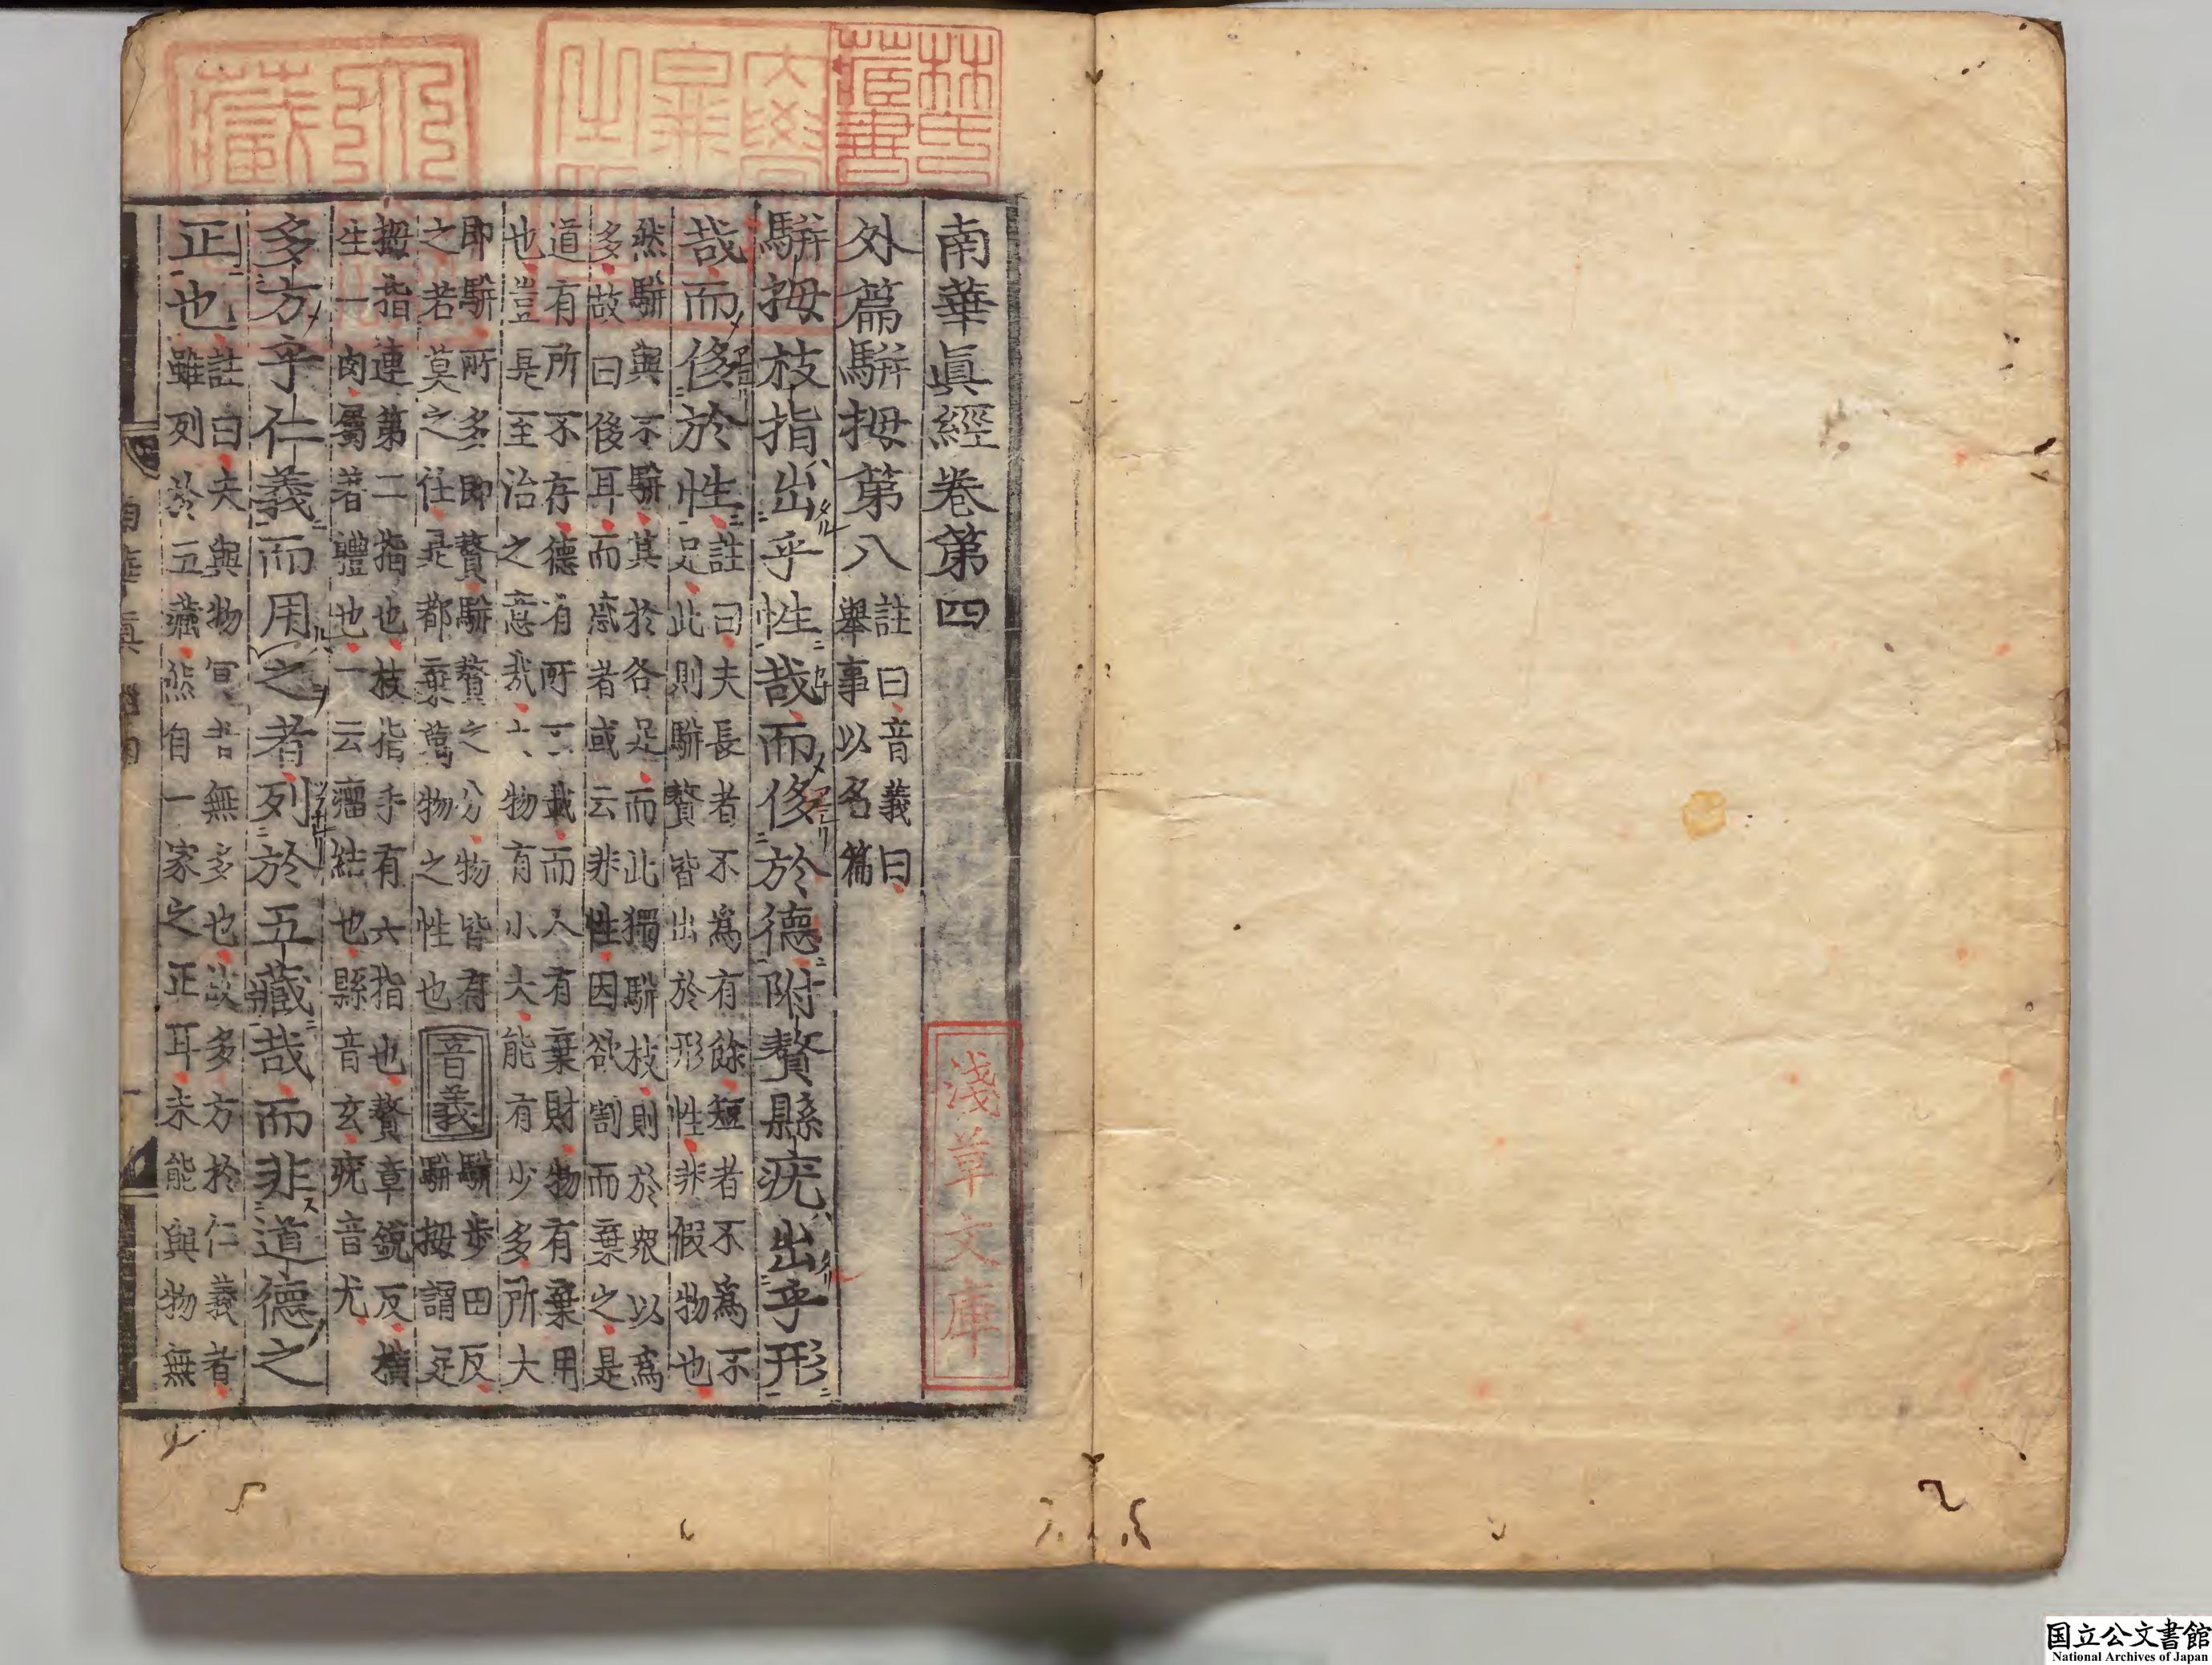 南華眞經卷第四
外篇駢拇第八
註曰音義曰
舉事以名篇
駢拇枝指出乎性哉而侈於德附贅縣疣出乎形
哉而侈於性
註曰夫長者不爲有餘短者不爲不
足此則駢贅皆出於形性非假物也
然駢與不駢其於各足而此獨駢枝則於衆以爲
多故曰侈耳而惑者或云非性因欲割而棄之是
道有所不存德有所不載而人有棄財物有棄用
也豈是至治之意哉夫物有小大能有少多所大
即駢所多即贅駢贅之分物皆有
之若莫之任是都棄萬物之性也
音義
駢步田反
駢拇謂足
拇指連第二指也枝指手有六指也贅章銳反横
生一肉屬著體也一云瘤結也縣音玄疣音尤
多方乎仁義而用之者列於五藏哉而非道德之
正也
註曰夫與物冥者無多也故多方於仁義者
雖列於五藏然自一家之正耳未能與物無
南華眞
一
林氏藏書
淺草文庫
国立公文書館
National Archives of Japan